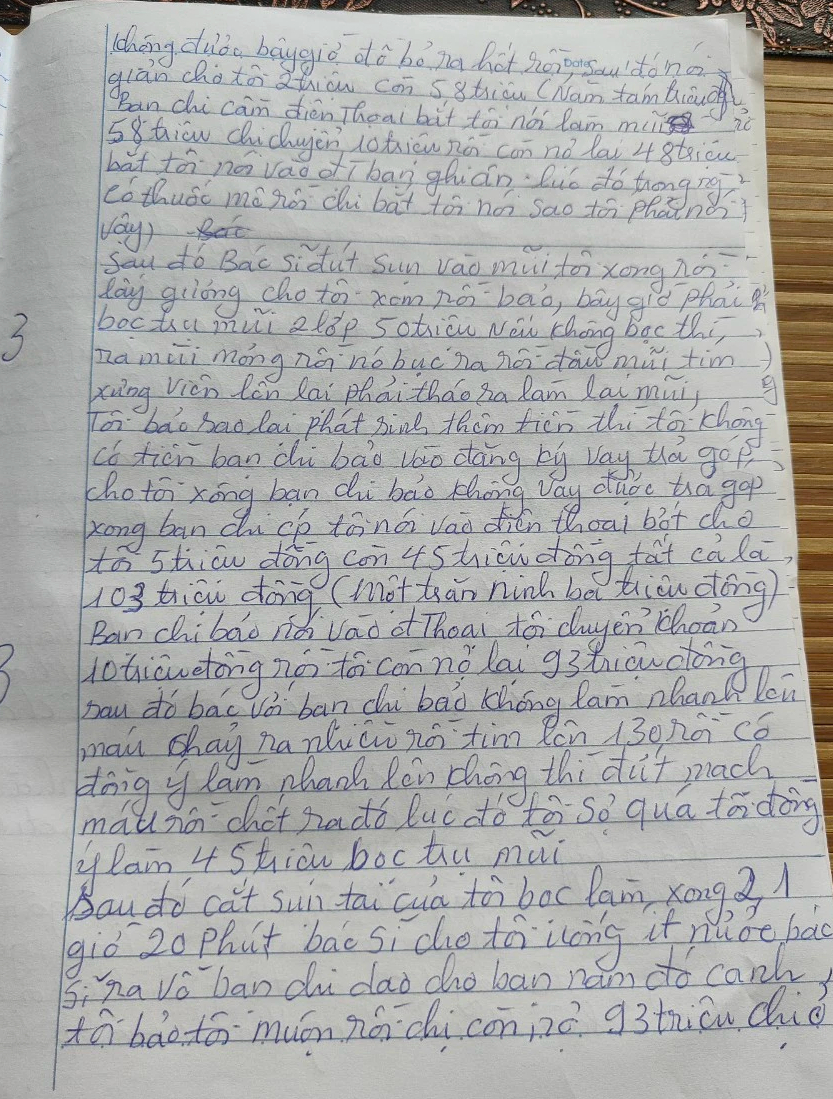 không được bây giờ đồ bỏ ra hết rồi, sau đó nói
Date
giản cho tôi 2 triệu còn 58 triệu (Năm tám triệu
Bạn chị cầm điện Thoại bắt tôi nói làm mũi
58 triệu chị chuyển 10 triệu rồi còn nợ lại 48 triệu
bắt tôi nói vào đT bạn ghi ân lúc đó trong
có thuốc mê rồi chị bắt tôi nói sao tôi phải nói
vậy)
Sau đó Bác sĩ đút sụn vào mũi tôi xong rồi
lấy gương cho tôi xem rồi bảo, bây giờ phải
bọc trụ mũi 2 lớp 50 triệu Nếu không bọc thì,
ra mũi mỏng rồi nó bục ra rồi đầu mũi tím
xưng viên lên lại phải tháo ra làm lại mũi,
Tôi bảo sao lại phát sinh thêm tiền thì tôi không
có tiền bạn chị bảo vào đăng ký vay trả góp,
cho tôi xong bạn chị bảo không vay được trả góp
xong bạn chị ép tôi nói vào điện thoại bớt cho
tôi 5 triệu đồng còn 45 triệu đồng tất cả là,
103 triệu đồng (một trăn ninh ba triệu đồng)
Bạn chị bảo nói vào đThoại tôi chuyển khoản
10 triệu đồng rồi tôi còn nợ lại 93 triệu đồng
sau đó bác với bạn chị bảo không làm nhanh lên
máu chảy ra nhiều rồi tim lên 130 rồi có
đồng ý làm nhanh lên không thì đứt mạch
máu rồi chết ra đó lúc đó tôi sợ quá tôi đồng
ý làm 45 triệu bọc trụ mũi
Sau đó cắt sụn tai của tôi bọc làm, xong 2,1
giờ 20 phút bác sĩ cho tôi uống ít nước bác
sĩ ra về bạn chị dao cho bạn nằm đó canh,
tôi bảo tôi muộn rồi chị còn, nợ 93 triệu chị ở